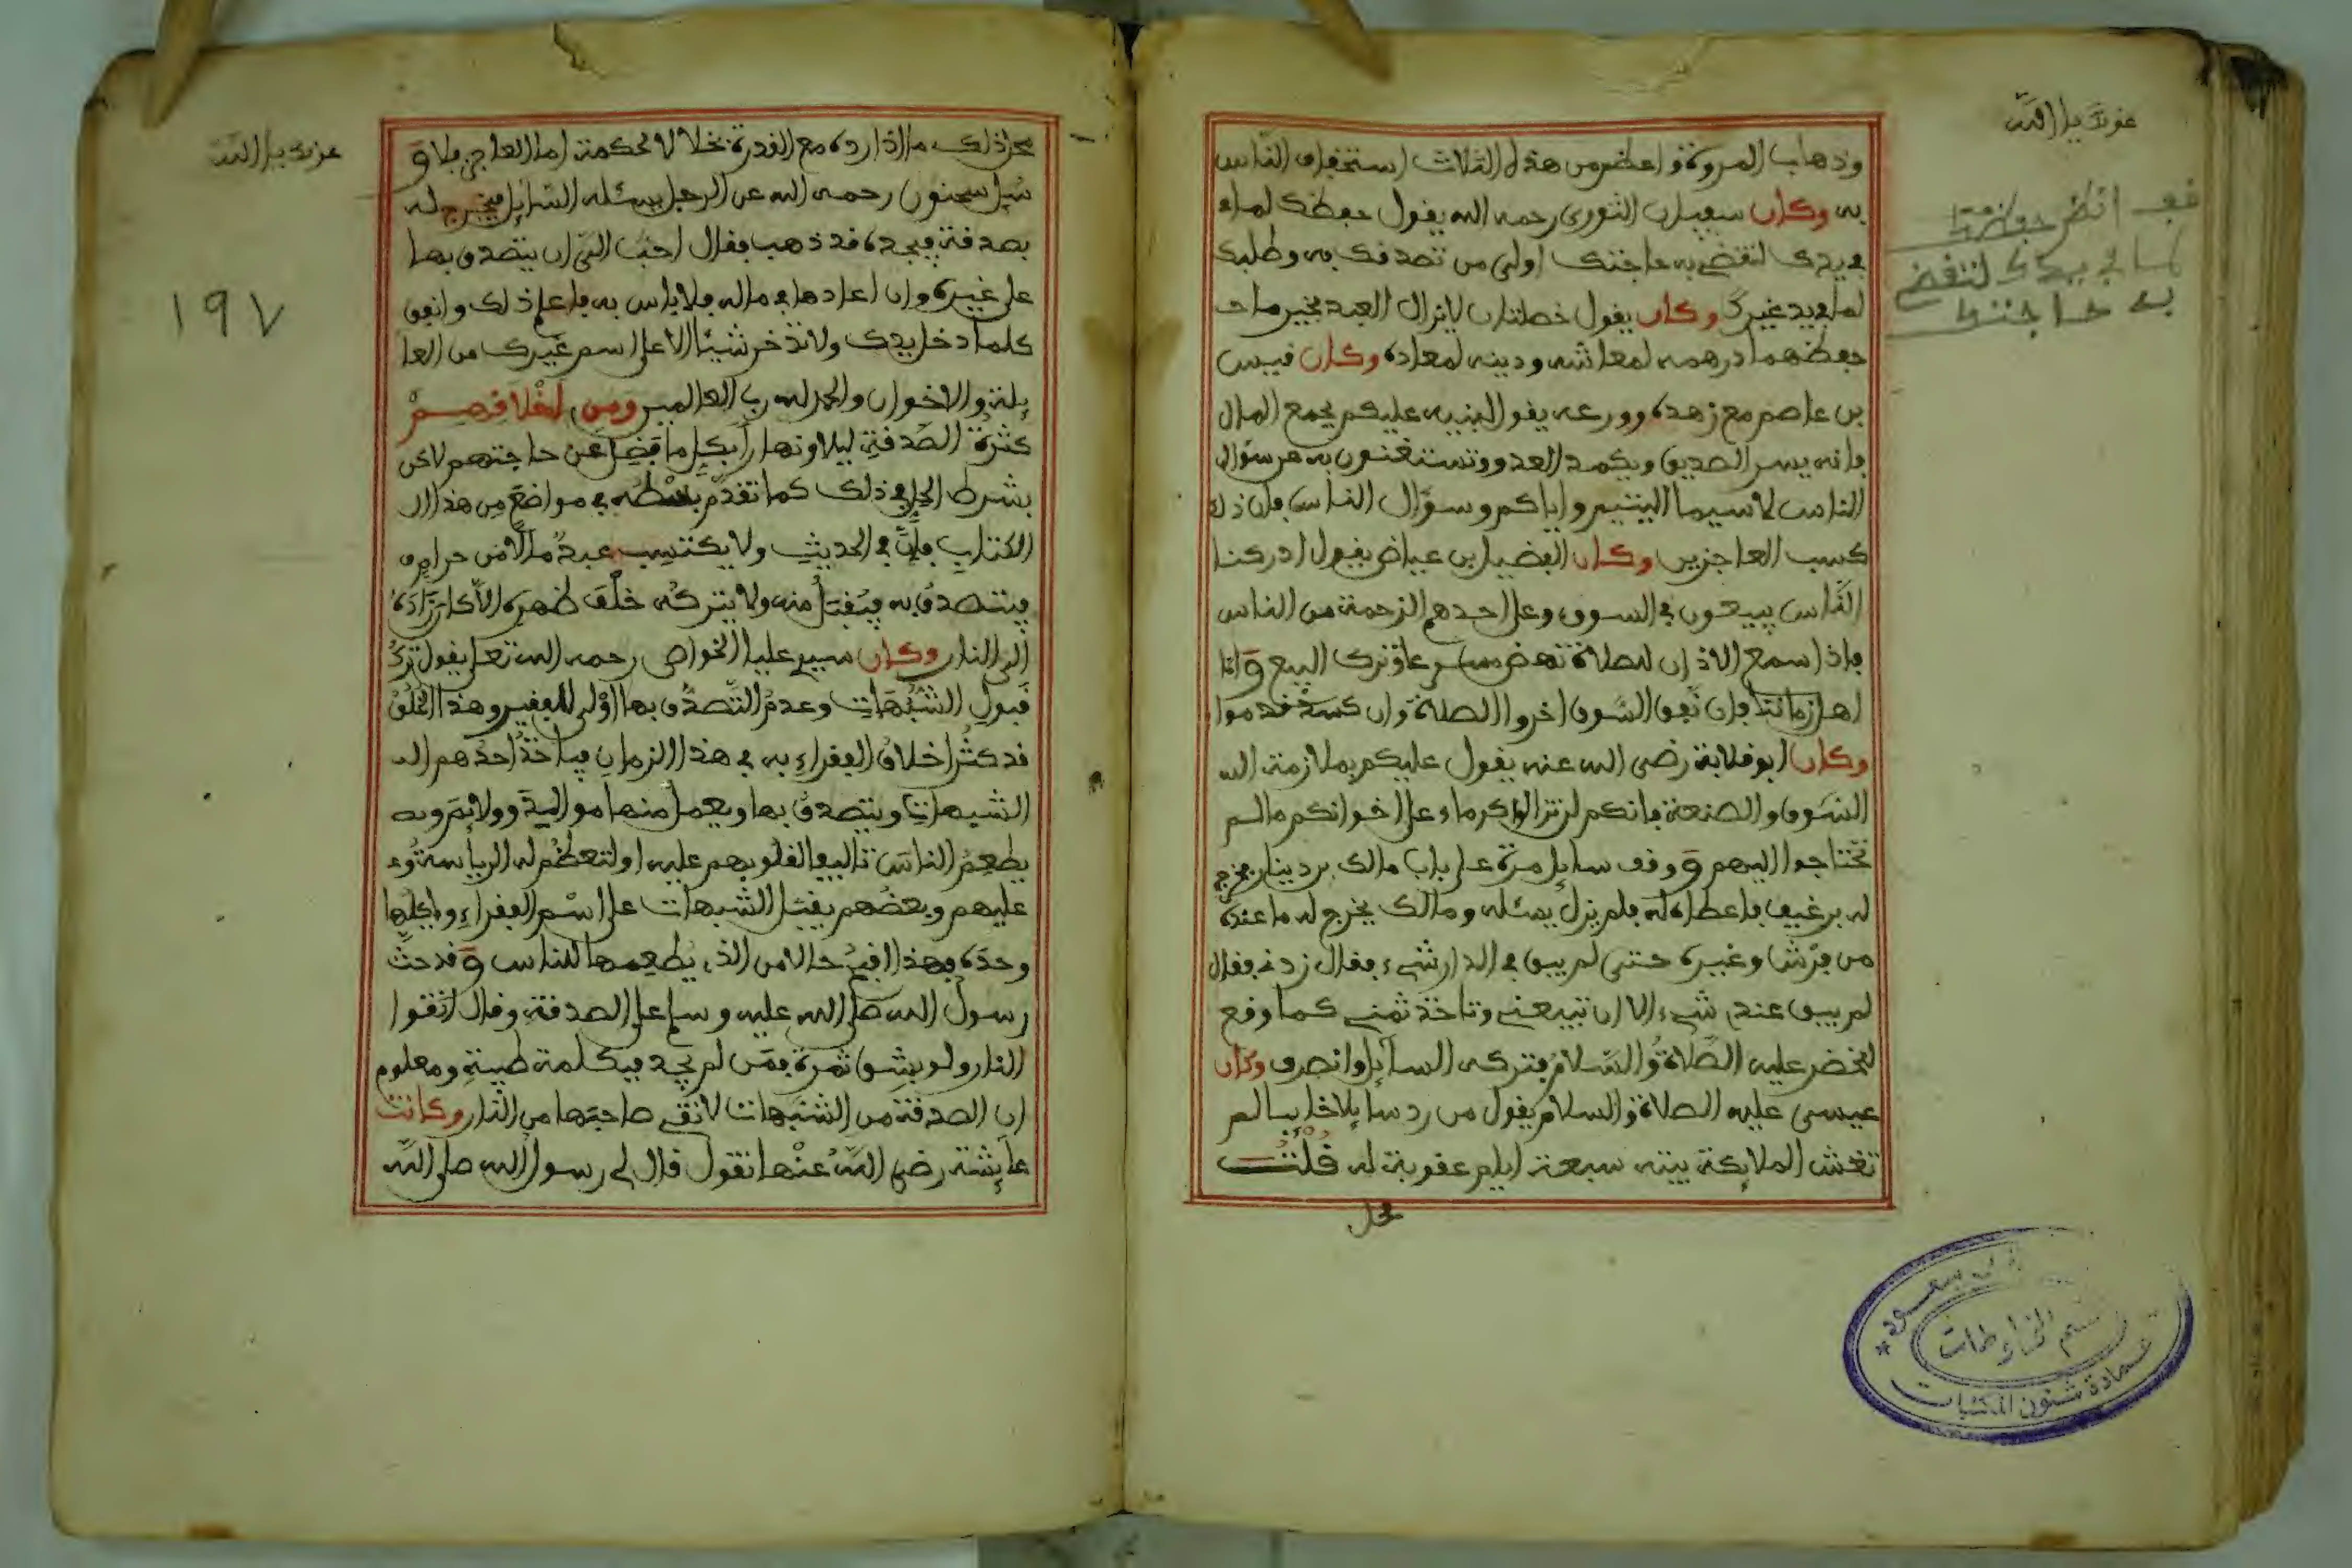 وذهاب المروءة واعظم من هذه الثلاث استخفاف الناس
به وكان سفيان الثوري رحمه الله يقول حفظك لما
في يدك لتقضي به حاجتك اولى من تصدقك به وطلبك
لما في يد غيرك وكان يقول خصلتان لا يزال العبد بخير ما
حفظهما درهمه لمعاشه ودينه لمعاده وكان قيس
بن عاصم مع زهده وورعه يقول لبنيه عليكم بجمع المال
فانه يسر الصديق ويكمد العدو وتستغنون به عن سؤال
الناس لا سيما البنيين واياكم وسؤال الناس فان ذلك
كسب العاجزين وكان الفضيل بن عياض يقول ادركنا
الناس يبيعون في السوق وعلى احدهم الزحمة من الناس
فاذا سمع الاذان للصلاة نهض مسرعا وترك البيع واما
اهل زماننا فان نفق السوق اخروا الصلاة وان كسد قدموا
وكان ابو قلابة رضي الله عنه يقول عليكم بملازمة ال
السوق والصنعة فانكم لن تزالوا كرماء على اخوانكم ما لم
تحتاجوا اليهم ووقف سايل مرة على باب مالك بن دينار فخرج
له برغيف فاعطاه له فلم يزل يسئله ومالك يخرج له ما عنده
من فرش وغيره حتى لم يبق في الدار شيء فقال زدني فقال
لم يبق عندي شيء الا ان تبيعني وتاخذ ثمني كما وقع
للخضر عليه الصلاة والسلام فتركه السآيل وانصرف وكان
عيسى عليه الصلاة والسلام يقول من رد سايلا خايبا لم
تغش الملايكة بيته سبعة ايام عقوبة له قلت
محل
عونك يا الله
قف انظر
لما في يدك لتقضي
به حاجتك
عمادة شئون المكتبات
قسم المخطوطات
محل ذلك ما اذا رده مع القدرة بخلا لا لحكمة اما العاجز فلا و
سيل سحنون رحمه الله عن الرجل يسئله السايل فيخرج له
بصدقة فيجده قد ذهب فقال احب الي ان يتصدق بها
على غيره وان اعادها في ماله فلا باس به فاعلم ذلك وانفق
كلما دخل يدك ولا تذخر شيئا الا على اسم غيرك من العا
يلة والاخوان والحمد لله رب العالمين ومن اخلاقهم
كثرة الصدقة ليلا ونهارا بكل ما فضل عن حاجتهم لاكن
بشرط الحل في ذلك كما تقدم بسطه في مواضع من هذا ال
الكتاب فان في الحديث ولا يكتسب عبد مالا من حرام
فيتصدق به فيقبل منه ولا يتركه خلف ظهره الا كان زاده
الى النار وكان سيدي عليا الخواص رحمه الله تعلى يقول ترك
قبول الشبهات وعدم التصدق بها اولى للفقير وهذا الخلق
قد كثر اخلاق الفقراء به في هذا الزمان فياخذ احدهم ال
الشبهات ويتصدق بها ويعمل منها موالية
يطعم الناس تاليفا لقلوبهم عليه او لتعظم له الرياسة
عليهم وبعضهم يقبل الشبهات على اسم الفقراء وياكلها
وحده فهذا اقبح حالا من الذي يطعمها للناس وقد حث
رسول الله صلى الله عليه وسلم على الصدقة وقال اتقوا
النار ولو بشق تمرة فمن لم يجد فبكلمة طيبة ومعلوم
ان الصدقة من الشبهات لا تقي صاحبها من النار وكانت
عايشة رضي الله عنها تقول قال لي رسول الله صلى الله
عونك يا الله
١٩٧